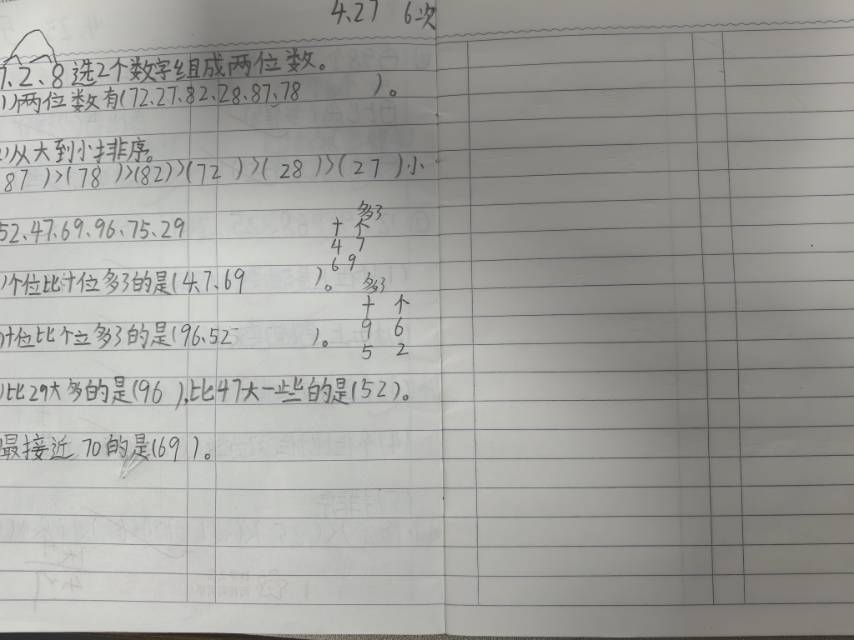 4.27 6次
7、2、8选2个数字组成两位数。
1)两位数有(72、27、82、28、87、78 )。
2)从大到小排序。
87 )>(78 )>(82)>(72 )>( 28 )>(27 )小
52、47、69、96、75、29
多3
十 个
4 7
6 9
)个位比十位多3的是(47、69 )。
多3
十 个
9 6
5 2
)十位比个位多3的是(96、52 )。
)比29大多的是(96 ),比47大一些的是(52)。
最接近 70的是(69 )。